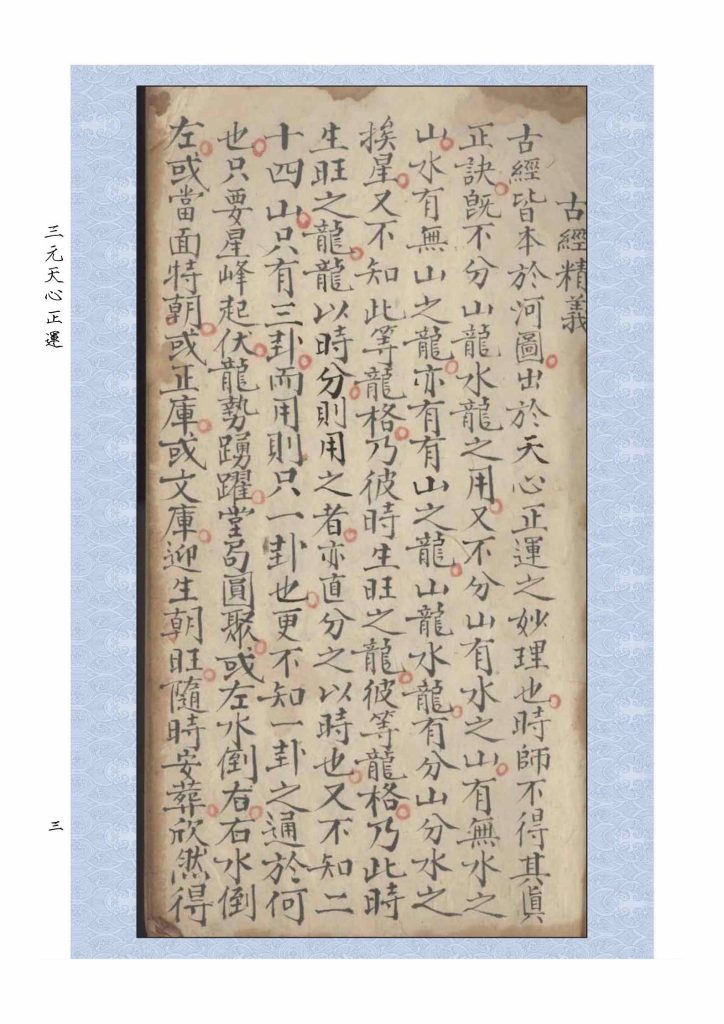 古經精義
古經皆本於河圖出於天心正運之妙理也時師不得其眞
正訣旣不分山龍水龍之用又不分山有水之山有無水之
山水有無山之龍亦有有山之龍山龍水龍有分山分水之
挨星又不知此等龍格乃彼時生旺之龍彼等龍格乃此時
生旺之龍龍以時分則用之者亦直分之以時也又不知二
十四山只有三卦而用則只一卦也更不知一卦之通於何
也只要星峰起伏龍勢踴躍堂局圓聚或左水倒右右水倒
左或當面特朝或正庫或文庫迎生朝旺隨時安葬欣然得
三元天心正運
三